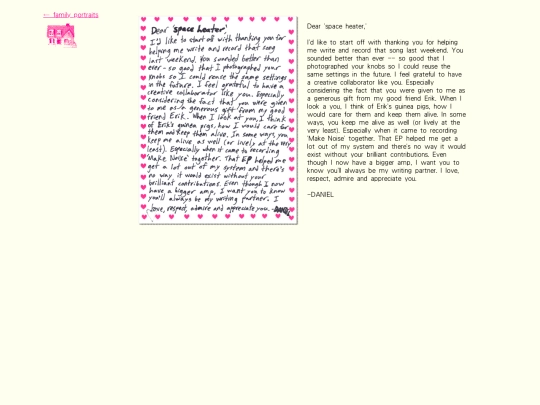 ← family portraits
Dear 'space heater'
I'd like to start off with thanking you for
helping me write and record that song
last weekend. You sounded better than
ever - so good that I photographed your
knobs so I could reuse the same settings
in the future. I feel grateful to have a
creative collaborator like you. Especially
considering the fact that you were given
to me as a generous gift from my good
friend Erik. When I look at you, I think
of Erik's guinea pigs, how I would care for
them and keep them alive. In some ways, you
keep me alive as well (or lively at the very
least). Especially when it came to recording
'Make Noise' together. That EP helped me
get a lot out of my system and there's
no way it would exist without your
brilliant contributions. Even though I now
have a bigger amp, I want you to know
you'll always be my writing partner. I
love, respect, admire and appreciate you. -DANIEL
Dear 'space heater,'
I'd like to start off with thanking you for helping
me write and record that song last weekend. You
sounded better than ever -- so good that I
photographed your knobs so I could reuse the
same settings in the future. I feel grateful to have
a creative collaborator like you. Especially
considering the fact that you were given to me as
a generous gift from my good friend Erik. When I
look a you, I think of Erik's guinea pigs, how I
would care for them and keep them alive. In some
ways, you keep me alive as well (or lively at the
very least). Especially when it came to recording
'Make Noise' together. That EP helped me get a
lot out of my system and there's no way it would
exist without your brilliant contributions. Even
though I now have a bigger amp, I want you to
know you'll always be my writing partner. I love,
respect, admire and appreciate you.
-DANIEL